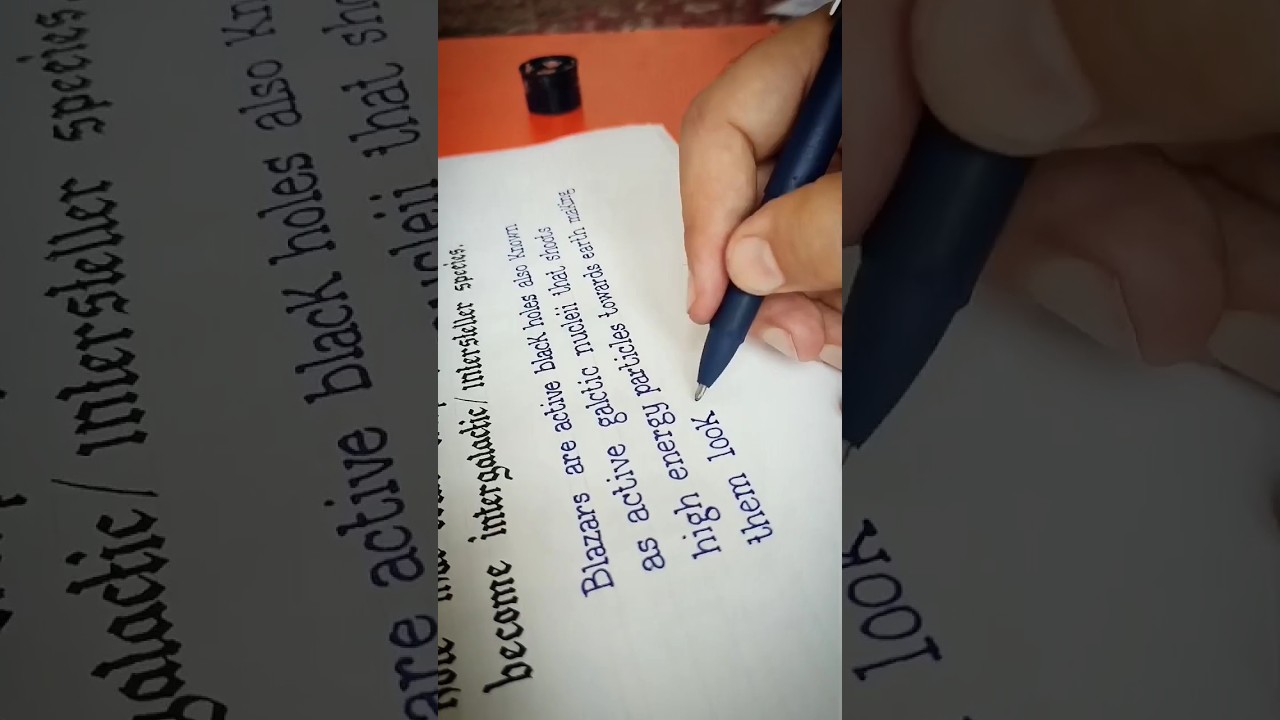 become intergalactic/intersteller species.
Blazars are active black holes also known
as active galctic nucleii that shoots
high energy particles towards earth making
them look